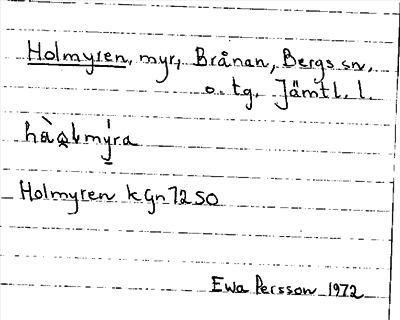 Holmyren, myr, Brånan, Bergs sn,
o. tg. Jämtl. l.
Holmyren kGn 7250
Ewa Persson 1972